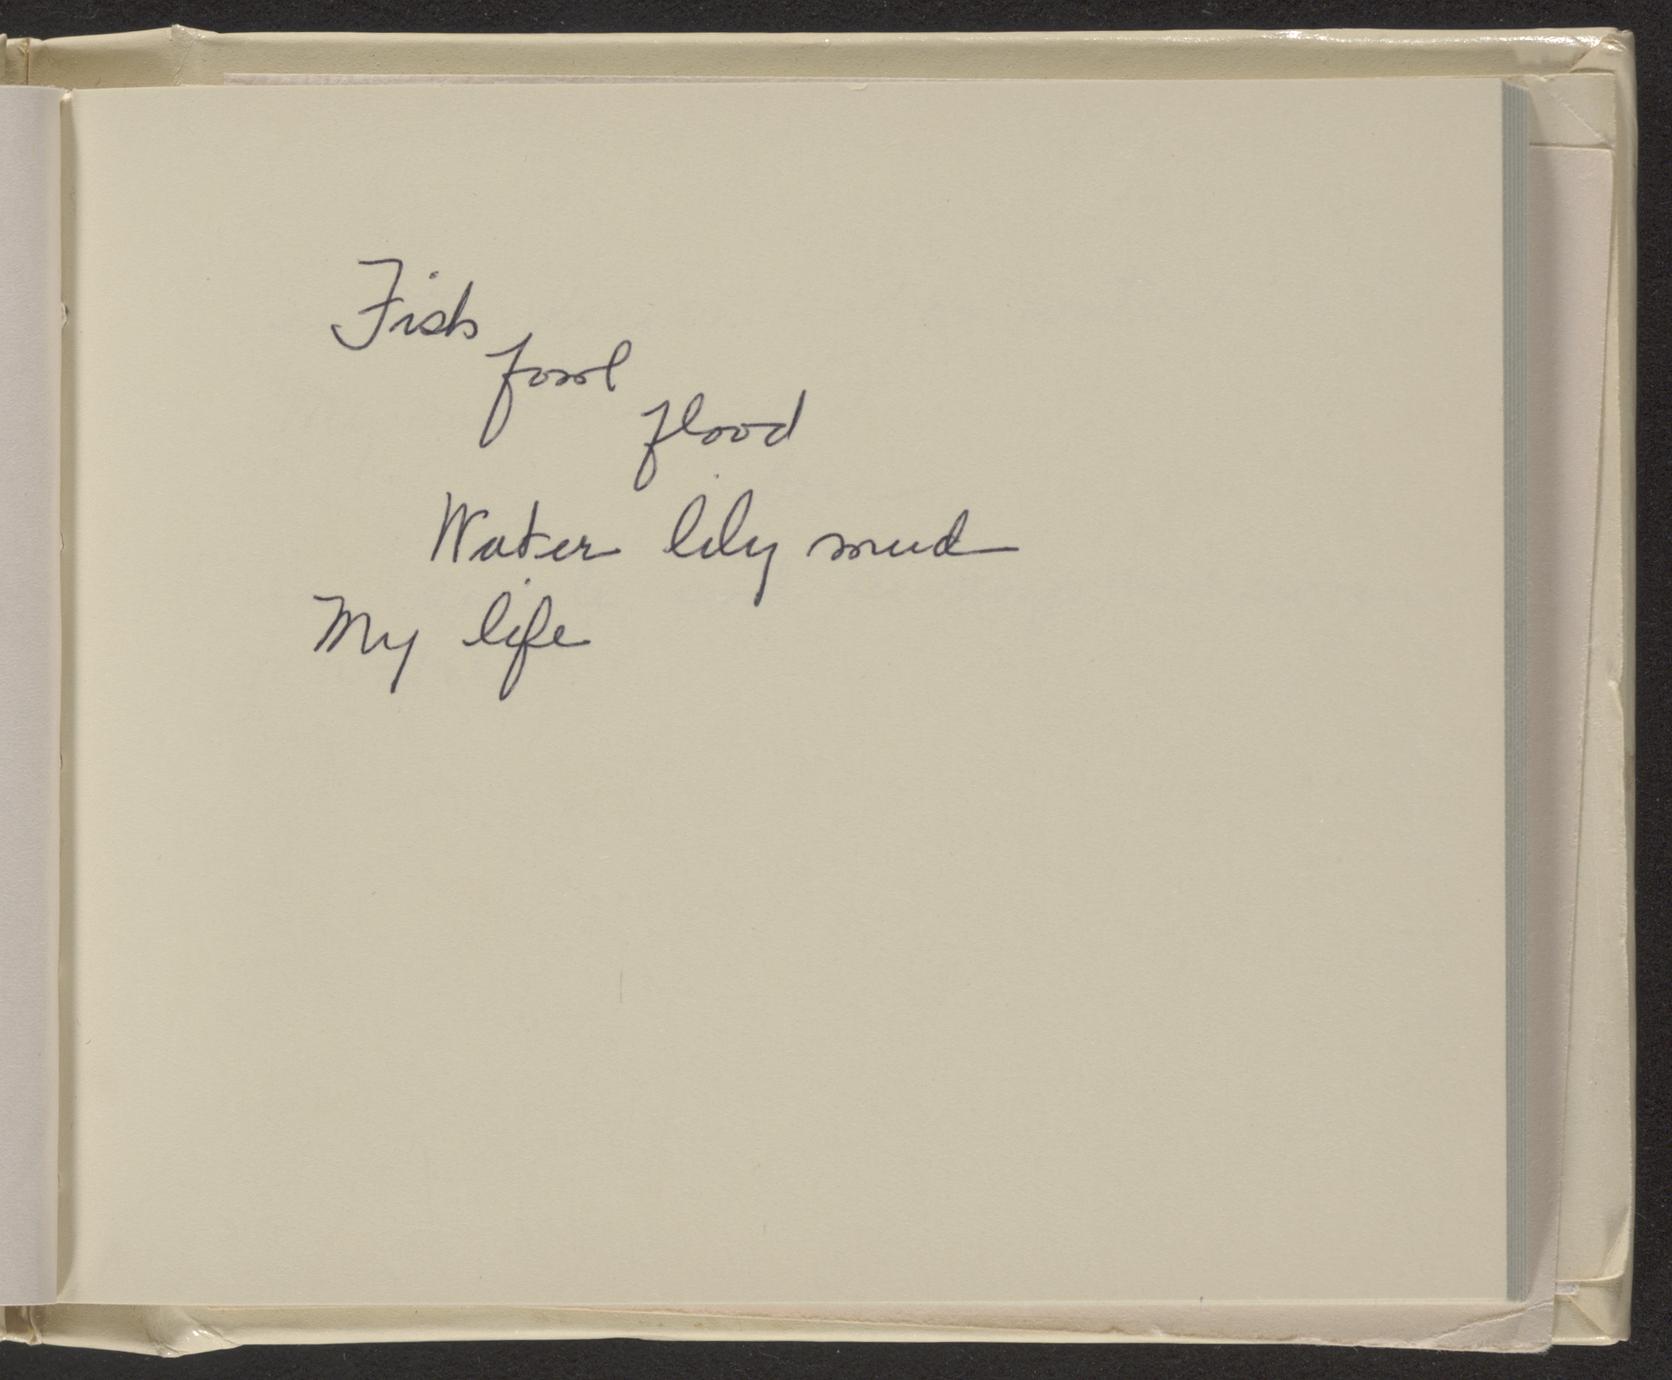 Fish
fowl
flood
Water lily mud
My life